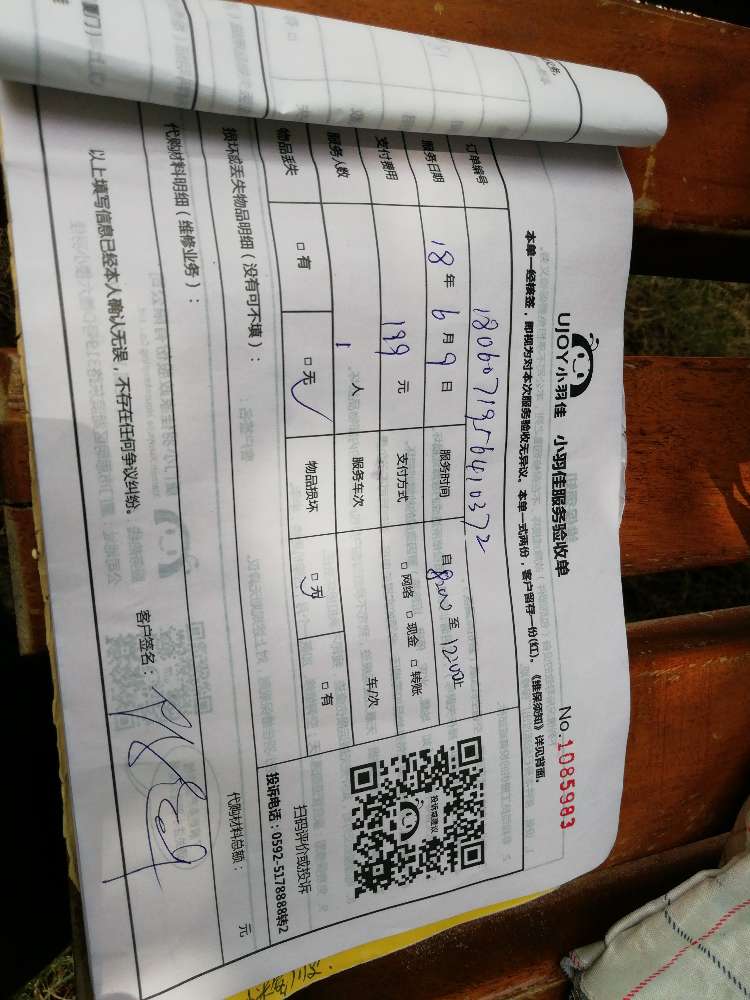 UJOY小羽佳 小羽佳服务验收单 No.1085983
本单一经核签，即视为对本次服务验收无异议。本单一式两份，客户留存一份(红)。《维保须知》详见背面。
订单编号 1806071956410372
服务日期 18年6月9日 服务时间 自8:00至12:00止
支付费用 199元 支付方式 □网络 □现金 □转账
服务人数 1人 服务车次 车/次
物品丢失 □有 □无✓ 物品损坏 □无 □有
投诉或建议
扫码评价或投诉
投诉电话：0592-5178888转2
损坏或丢失物品明细（没有可不填）：
代购材料明细（维修业务）： 代购材料总额： 元
以上填写信息已经本人确认无误，不存在任何争议纠纷。 客户签名：